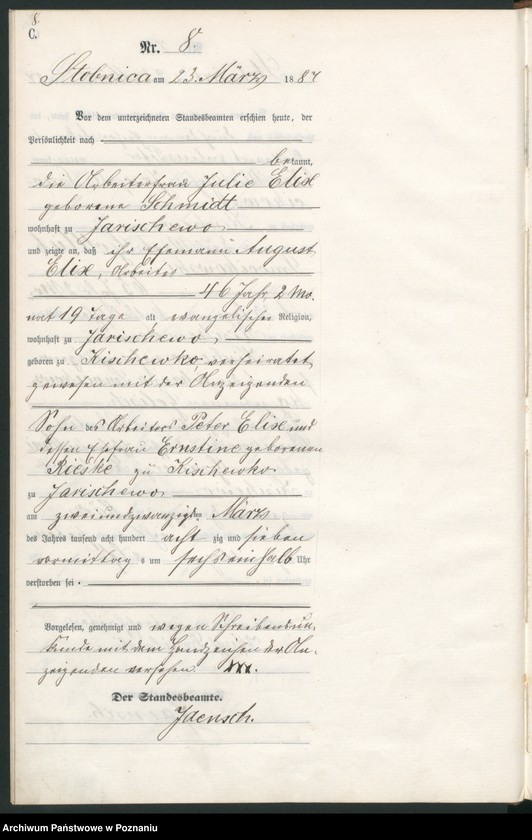 8.
C.
Nr. 8.
Stobnica am 23. März 1887
Vor dem unterzeichneten Standesbeamten erschien heute, der
Persönlichkeit nach
bekannt,
die Arbeiterfrau Julie Elix
geborene Schmidt
wohnhaft zu Jarischewo
und zeigte an, daß ihr Ehemann August
Elix, Arbeiter
46 Jahr, 2 Mo-
nat 19 Tage alt, evangelischer Religion,
wohnhaft zu Jarischewo,
geboren zu Kischewko, verheiratet
gewesen mit der Anzeigenden
Sohn des Arbeiters Peter Elix und
dessen Ehefrau Ernstine geborenen
Rieske zu Kischewko
zu Jarischewo
am zweiundzwanzigsten März
des Jahres tausend acht hundert acht zig und sieben
vormittags um sechseinhalb Uhr
verstorben sei.
Vorgelesen, genehmigt und wegen Schreibensun-
kunde mit dem Handzeichen der An-
zeigenden versehen. xxx.
Der Standesbeamte.
Jaensch.
Archiwum Państwowe w Poznaniu